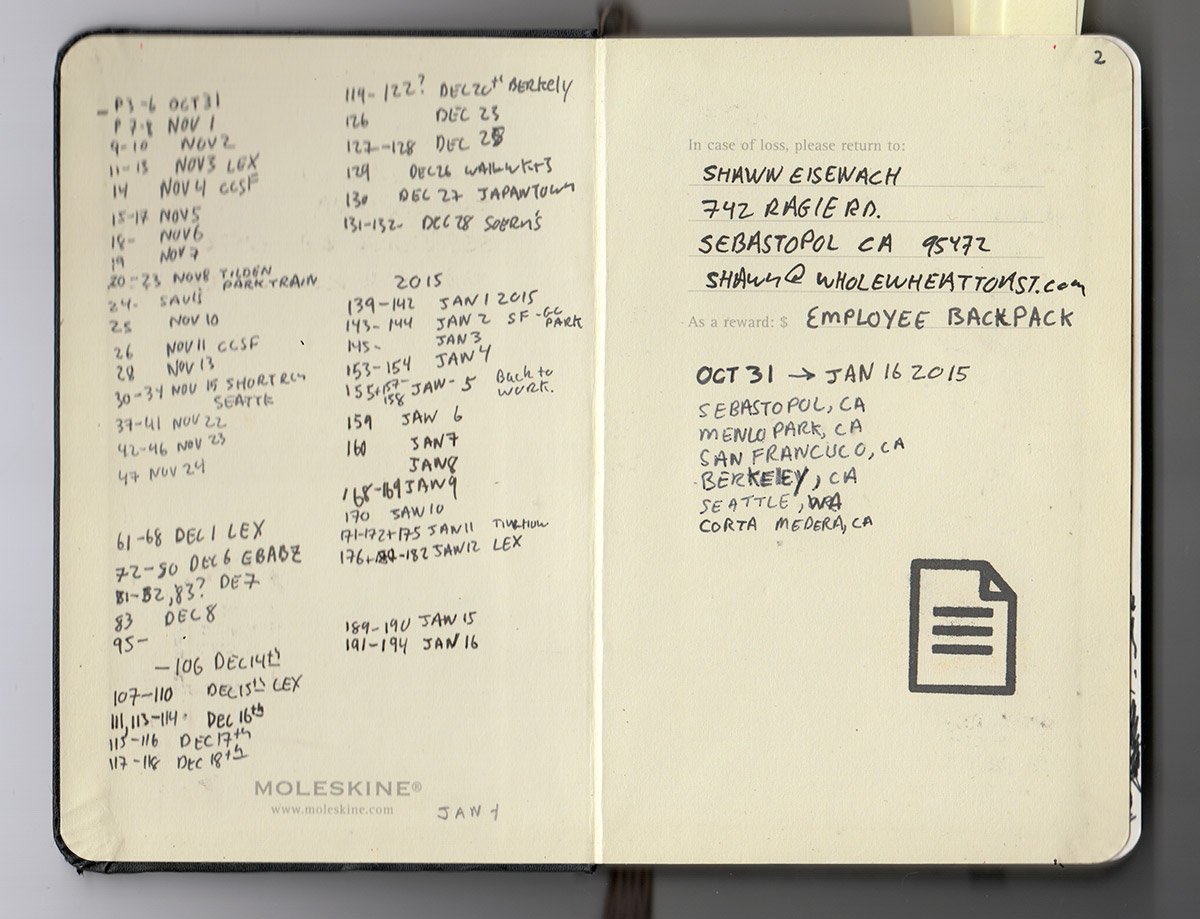 P3-6 OCT 31
P 7-8 NOV 1
9-10 NOV 2
11-13 NOV 3 LEX
14 NOV 4 CCSF
15-17 NOV 5
18- NOV 6
19 NOV 7
20-23 NOV 8 TILDEN
PARK TRAIN
24-
25 NOV 10
26 NOV 11 CCSF
28 NOV 13
30-34 NOV 15 SHORT RUN
SEATTLE
37-41 NOV 22
42-46 NOV 23
47 NOV 24
61-68 DEC 1 LEX
72-80 DEC 6 EBABZ
81-82, 83? DE 7
83 DEC 8
95-
-106 DEC 14th
107-110 DEC 15th LEX
111, 113-114- DEC 16th
115-116 DEC 17th
117-118 DEC 18th
119-122? DEC 20th BERKELY
126 DEC 23
127-128 DEC 25
129 DEC 26
130 DEC 27 JAPANTOWN
131-132- DEC 28
2015
139-142 JAN 1 2015
143-144 JAN 2 SF-GG
PARK
145- JAN 3
153-154 JAN 4
155+157-
158 JAN-5 Back to
WORK.
159 JAN 6
160 JAN 7
JAN 8
168-169 JAN 9
170 JAN 10
171-172+175 JAN 11
176+ -182 JAN 12 LEX
189-190 JAN 15
191-194 JAN 16
MOLESKINE®
www.moleskine.com
JAN 1
2
In case of loss, please return to:
SHAWN EISENACH
742 RAGLE RD.
SEBASTOPOL CA 95472
SHAWN@WHOLEWHEATTOAST.com
As a reward: $ EMPLOYEE BACKPACK
OCT 31 → JAN 16 2015
SEBASTOPOL, CA
MENLO PARK, CA
SAN FRANCISCO, CA
BERKELEY, CA
SEATTLE, WA
CORTA MEDERA, CA